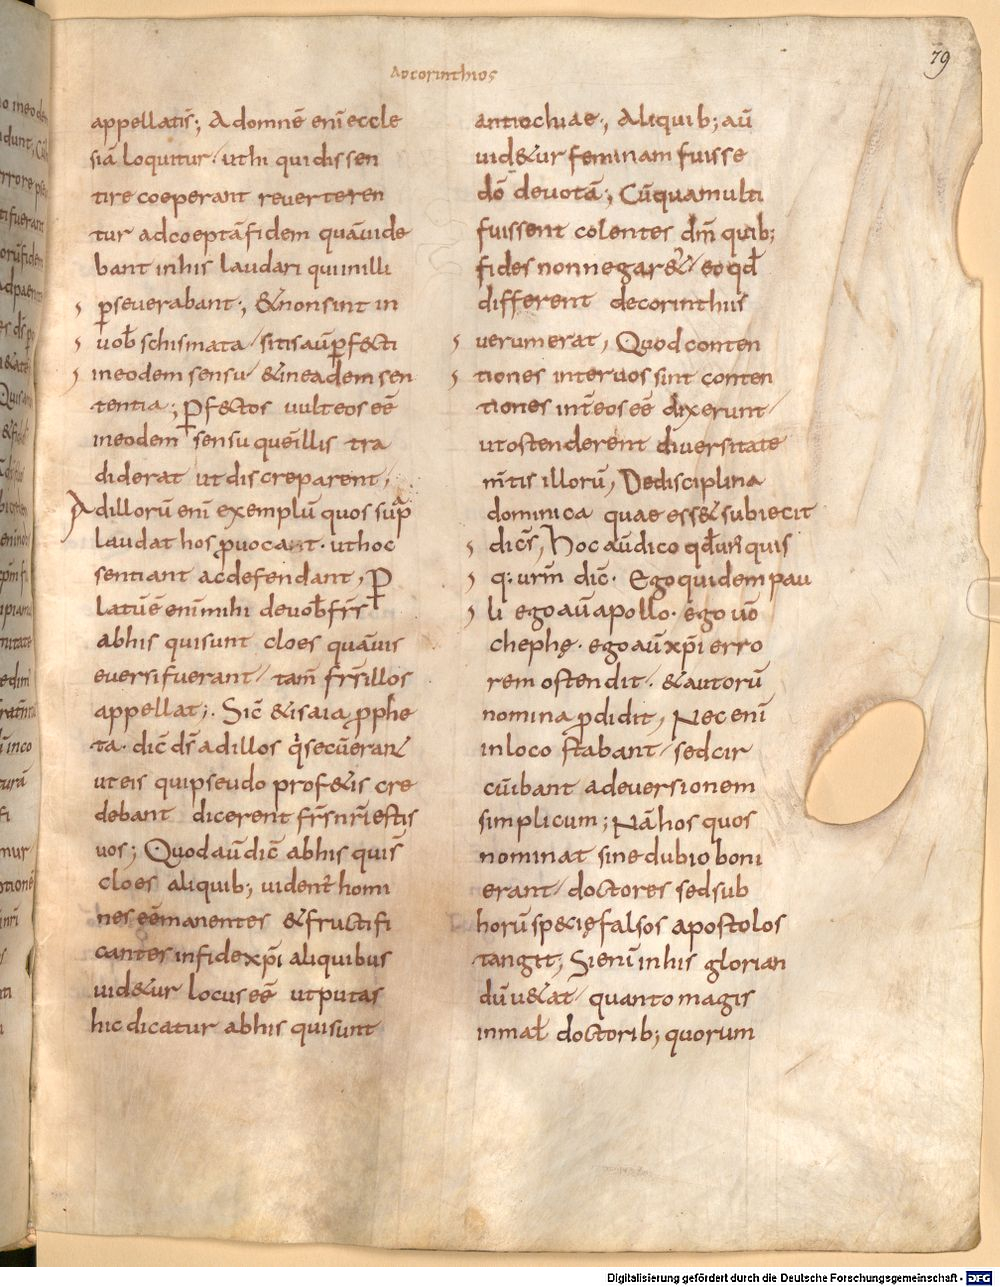 Adcorinthios
79
appellatis; Adomnē enī eccle
siā loquitur. uthi qui dissen
tire coeperant reuerteren
tur ad coeptā fidem quā uide
bant in his laudari qui in illi
ꝑseuerabant; & non sint in
uob̄ schismata / sitis aū ꝑf&cti
in eodem sensu / & in eadem sen
tentia; Ꝑf&ctos uult eos eē
in eodem sensu quē illis tra
diderat ut discreparent,
Ad illorū enī exemplū quos sup̄
laudat hos ꝓuocant. ut hoc
sentiant ac defendant, Ꝑ
latū ē enī mihi de uob̄ fr̄s
ab his qui sunt cloes quāuis
euersi fuerant / tam̄ fr̄s illos
appellat;. Sic̄ & isaia ꝓphe
ta. dic̄ dr̄ ad illos q̄i secū eran̄
ut eis qui pseudo prof&is cre
debant dicerent fr̄s nr̄i estis
uos; Quod aū dic̄ ab his qui s̄
cloes aliquib; uident̄ homi
nes eē manentes & fructifi
cantes in fide xp̄i aliquibus
uid&ur locus eē ut putas
hic dicatur ab his qui sunt
antiochiae, Aliquib; aū
uid&ur feminam fuisse
dō deuotā; Cū qua multi
fuissent colentes dm̄ quib;
fides non negar&/ eo qd̄
different de corinthiis
uerum erat, Quod conten
tiones inter uos sint conten
tiones int̄ eos eē dixerunt
ut ostenderent diuersitate
m̄tis illorū, De disciplina
dominica quae ess& subiecit
dic̄s, Hoc aū dico qd̄ unusquis
q: urm̄ dic̄. Ego quidem pau
li ego aū apollo. ego uō
chephę. ego aū xp̄i erro
rem ostendit. & autorū
nomina ꝓdidit, Nec enī
in loco stabant / sed cir
cūibant ad euersionem
simplicum; Nā hos quos
nominat sine dubio boni
erant / doctores sed sub
horū sp&ię falsos apostolos
tangit; Si enī in his glorian
dū u&at / quanto magis
in mal̄ doctorib; quorum
Digitalisierung gefördert durch die Deutsche Forschungsgemeinschaft - DFG